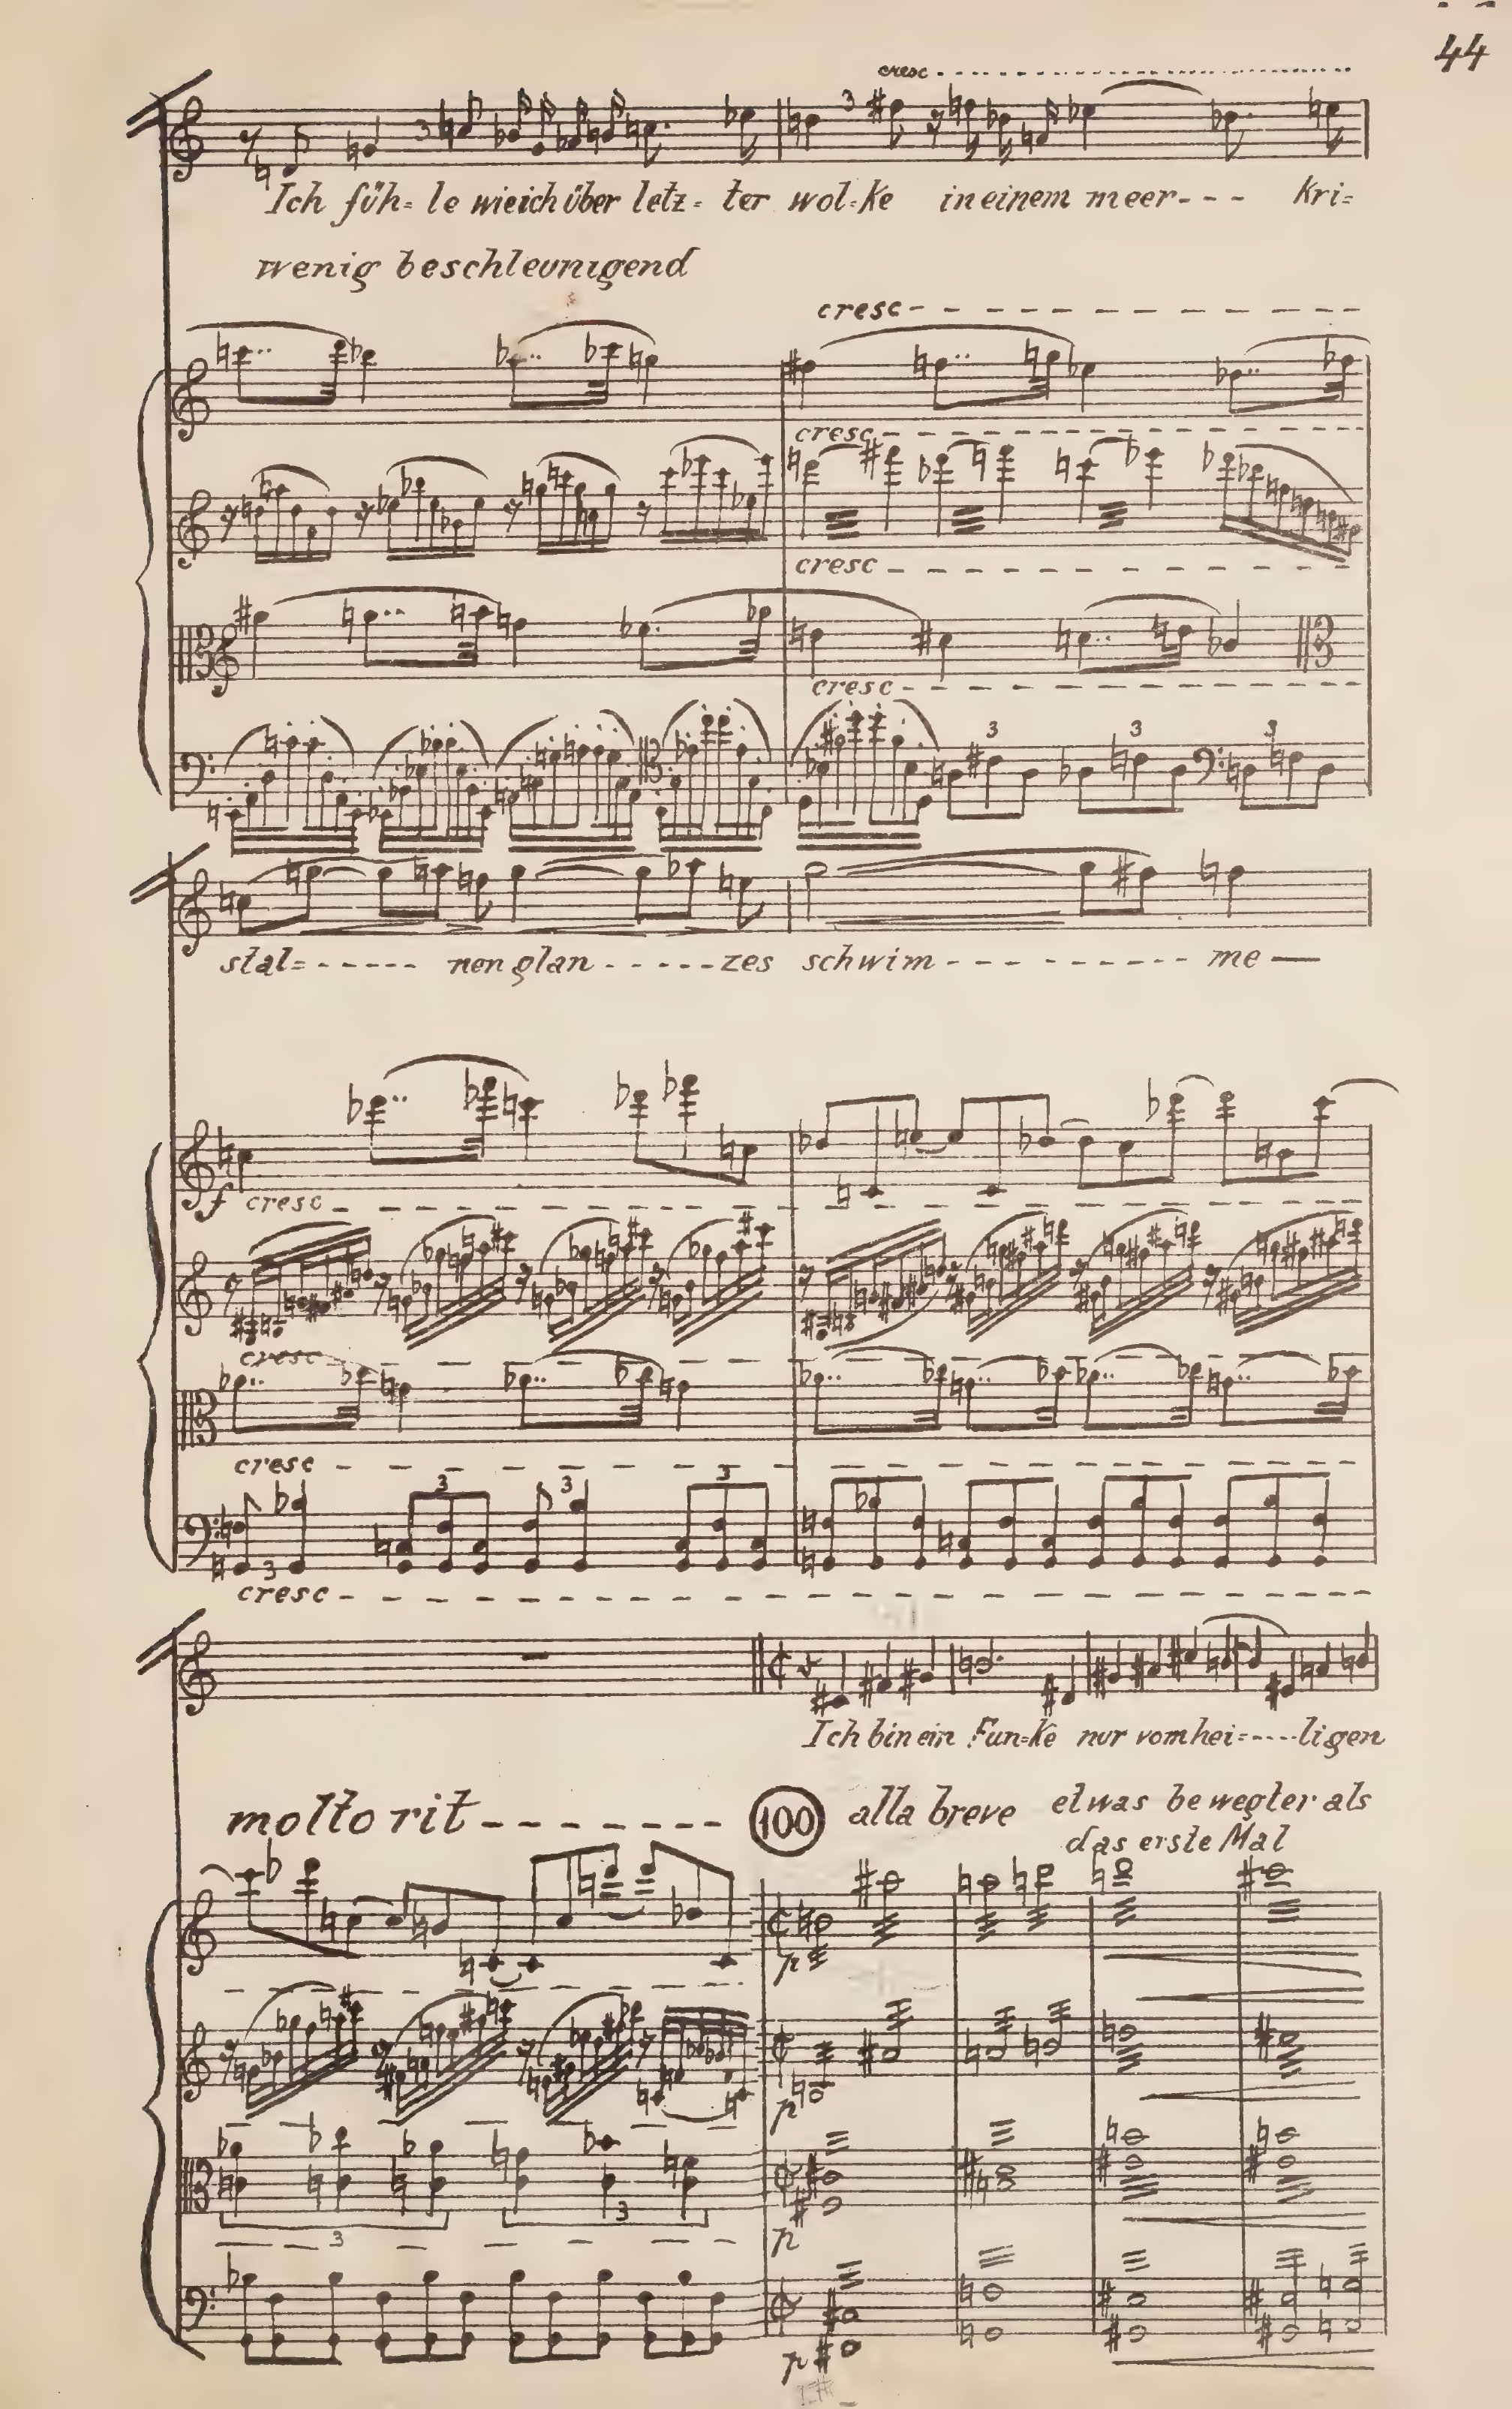 44
cresc
3 3
Ich füh= le wie ich über letz= ter wol=ke in einem meer--- kri=
wenig beschleunigend
cresc
cresc
cresc
cresc
3 3 3
stal=----- nen glan-----zes schwim---------- me—
f cresc
cresc
cresc
3 3 3
3
cresc
Ich bin ein Fun=ke nur vom hei=----ligen
molto rit------- 100 alla breve etwas bewegter als
das erste Mal
p
p
3
3
p
p